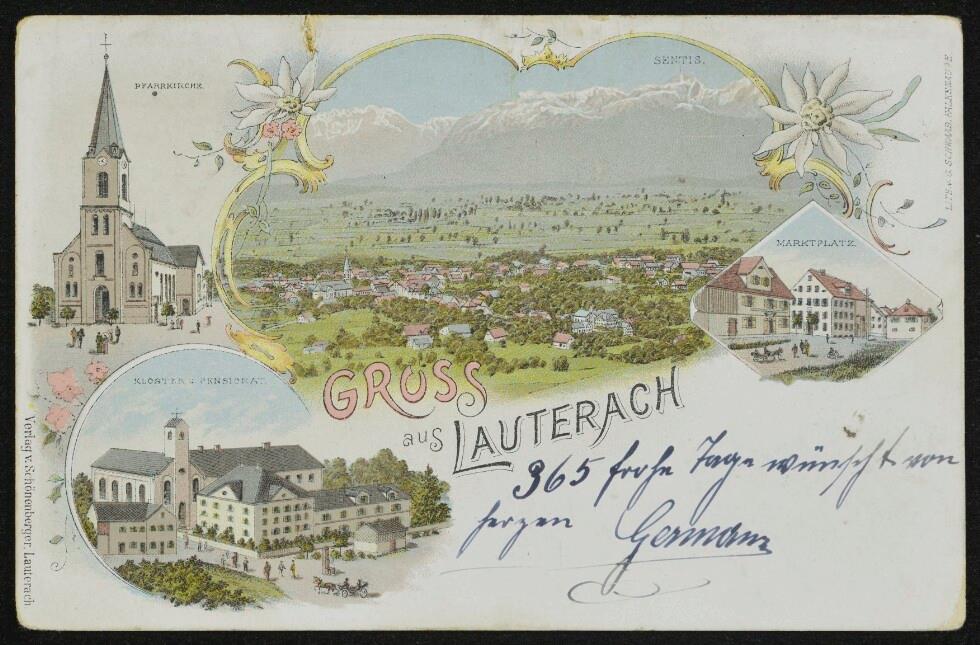 PFARRKIRCHE.
SENTIS.
MARKTPLATZ.
KLOSTER u. PENSIONAT.
GRUSS
aus LAUTERACH
365 frohe Tage wünscht von
herzen Germann
Verlag v. Schönenberger, Lauterach